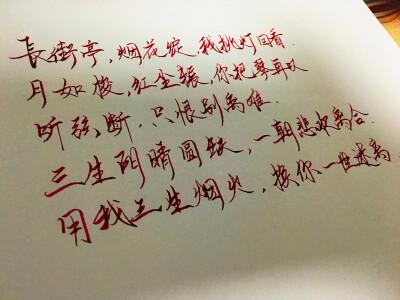 長街亭，烟花绽，我挑灯回看.
月如梭，红尘辗，你把琴再叹
听弦断，只恨别离难.
三生阴晴圆缺，一朝悲欢离合.
用我三生烟火，换你一世迷离.